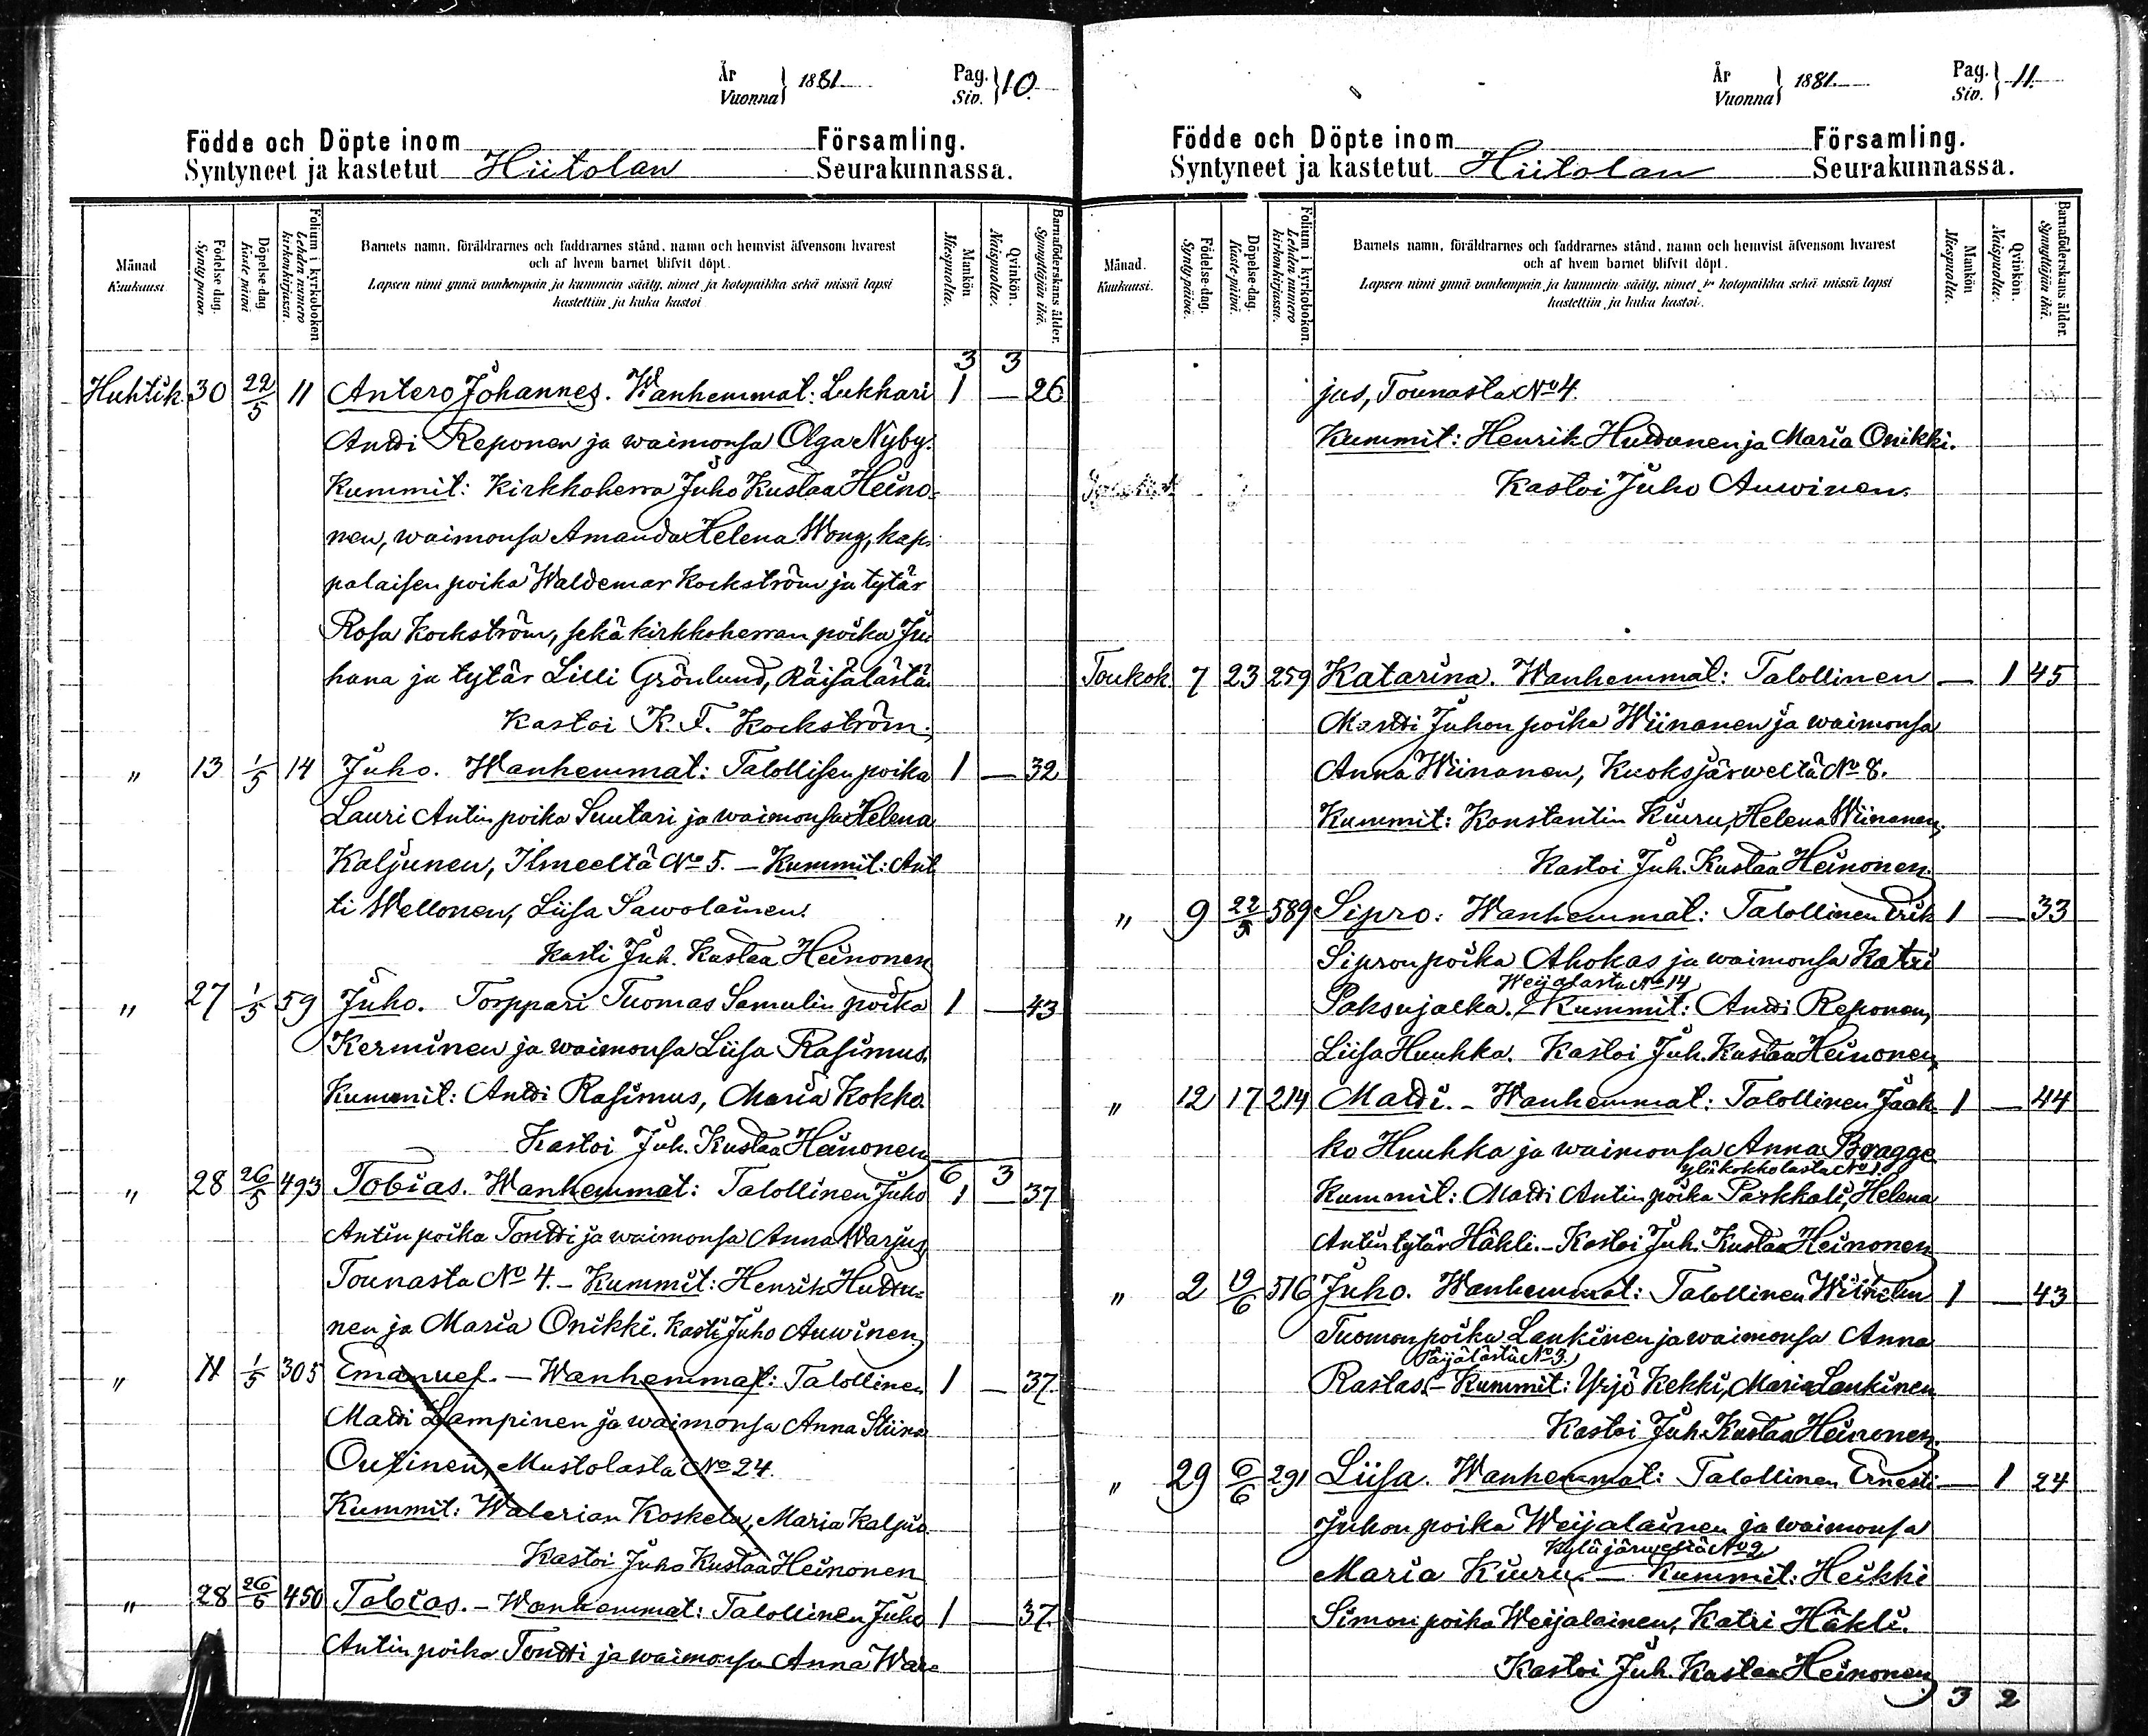 År
Vuonna } 1881.
Pag.
Siv. } 10.
Födde och Döpte inom Församling.
Syntyneet ja kastetut Hiitolan Seurakunnassa.
Månad
Kuukausi
Födelse dag.
Synty päivä
Döpelse-dag
Kaste päivä
Folium i kyrkoboken
Lehden numero kirkonkirjassa.
Barnets namn, föräldrarnes och faddrarnes stånd, namn och hemvist äfvensom hvarest
och af hvem barnet blifvit döpt.
Lapsen nimi ynnä vanhempain ja kummein sääty, nimet ja kotopaikka sekä missä lapsi
kastettiin ja kuka kastoi
Mankön
Miespuolia.
Qvinkön.
Naispuolia.
Barnaföderskans ålder.
Synnyttäjän ikä.
3 3
Huhtik. 30 22/5 11 Antero Johannes. Wanhemmat: Lukkari 1 — 26
Antti Reponen ja waimonsa Olga Nyby.
Kummit: Kirkkoherra Juho Kustaa Heino-
nen, waimonsa Amanda Helena Wong, kap-
palaisen poika Waldemar Kockström ja tytär
Rosa Kockström, sekä kirkkoherran poika Ju
hana ja tytär Lilli Grönlund, Räisälästä.
Kastoi K. F. Kockström.
" 13 1/5 14 Juho. Wanhemmat: Talollisen poika 1 — 32
Lauri Antin poika Suutari ja waimonsa Helena
Kaljunen, Ilmeeltä No 5. — Kummit: Ant
ti Wellonen, Liisa Sawolainen.
Kasti Juh. Kustaa Heinonen
" 27 1/5 59 Juho. Torppari Tuomas Samulin poika 1 — 43
Kerminen ja waimonsa Liisa Rasimus.
Kummit: Antti Rasimus, Maria Kokko.
Kastoi Juh. Kustaa Heinonen
6 3
" 28 26/5 493 Tobias. Wanhemmat: Talollinen Juho 1 — 37
Antin poika Tontti ja waimonsa Anna Warjus,
Tounasta No 4. — Kummit: Henrik Huttu-
nen ja Maria Onikki. Kasti Juho Auwinen.
" 11 1/5 305 Emanuel. — Wanhemmat: Talollinen 1 — 37
Matti Lampinen ja waimonsa Anna Stiina
Outinen, Mustolasta No 24.
Kummit: Walerian Koskela, Maria Kaljus.
Kastoi Juho Kustaa Heinonen
" 28 26/6 450 Tobias. — Wanhemmat: Talollinen Juho 1 — 37
Antin poika Tontti ja waimonsa Anna War=
År
Vuonna } 1881.
Pag.
Siv. } 11.
Födde och Döpte inom Församling.
Syntyneet ja kastetut Hiitolan Seurakunnassa.
Månad.
Kuukausi.
Födelse-dag.
Synty-päivä.
Döpelse-dag.
Kaste-päivä.
Folium i kyrkoboken.
Lehden numero kirkonkirjassa.
Barnets namn, föräldrarnes och faddrarnes stånd, namn och hemvist äfvensom hvarest
och af hvem barnet blifvit döpt.
Lapsen nimi ynnä vanhempain ja kummein sääty, nimet ja kotopaikka sekä missä lapsi
kastettiin ja kuka kastoi.
Mankön
Miespuolia.
Qvinkön.
Naispuolia.
Barnaföderskans ålder.
Synnyttäjän ikä.
jus, Tounasta No 4.
Kummit: Henrik Huttunen ja Maria Onikki.
Kastoi Juho Auwinen.
Toukok. 7 23 259 Katarina. Wanhemmat: Talollinen — 1 45
Martti Juhon poika Wiinanen ja waimonsa
Anna Wiinanen, Kuoksjärweltä No 8.
Kummit: Konstantin Kiuru, Helena Wiinanen.
Kastoi Juh. Kustaa Heinonen.
" 9 22/5 589 Sipro: Wanhemmat: Talollinen Erik 1 — 33
Sipron poika Ahokas ja waimonsa Katri
Weijalasta No 14
Paksujalka. — Kummit: Antti Reponen,
Liisa Huuhka. Kastoi Juh. Kustaa Heinonen.
" 12 17 214 Matti. — Wanhemmat: Talollinen Jaak 1 — 44
ko Huuhka ja waimonsa Anna Bragge
Yläkokkolasta No 1.
Kummit: Matti Antin poika Parkkali, Helena
Antin tytär Häkli. — Kastoi Juh. Kustaa Heinonen
" 2 19/6 516 Juho. Wanhemmat: Talollinen Wilhelm 1 — 43
Tuomon poika Lankinen ja waimonsa Anna
Päijälästä No 3.
Rastas. — Kummit: Yrjö Kekki, Maria Lankinen
Kastoi Juh. Kustaa Heinonen.
" 29 6/6 291 Liisa. Wanhemmat: Talollinen Ernesti — 1 24
Juhon poika Weijalainen ja waimonsa
Kyläjärweltä No 2
Maria Kiuru. — Kummit: Heikki
Simon poika Weijalainen, Katri Häkli.
Kastoi Juh. Kustaa Heinonen.
3 2